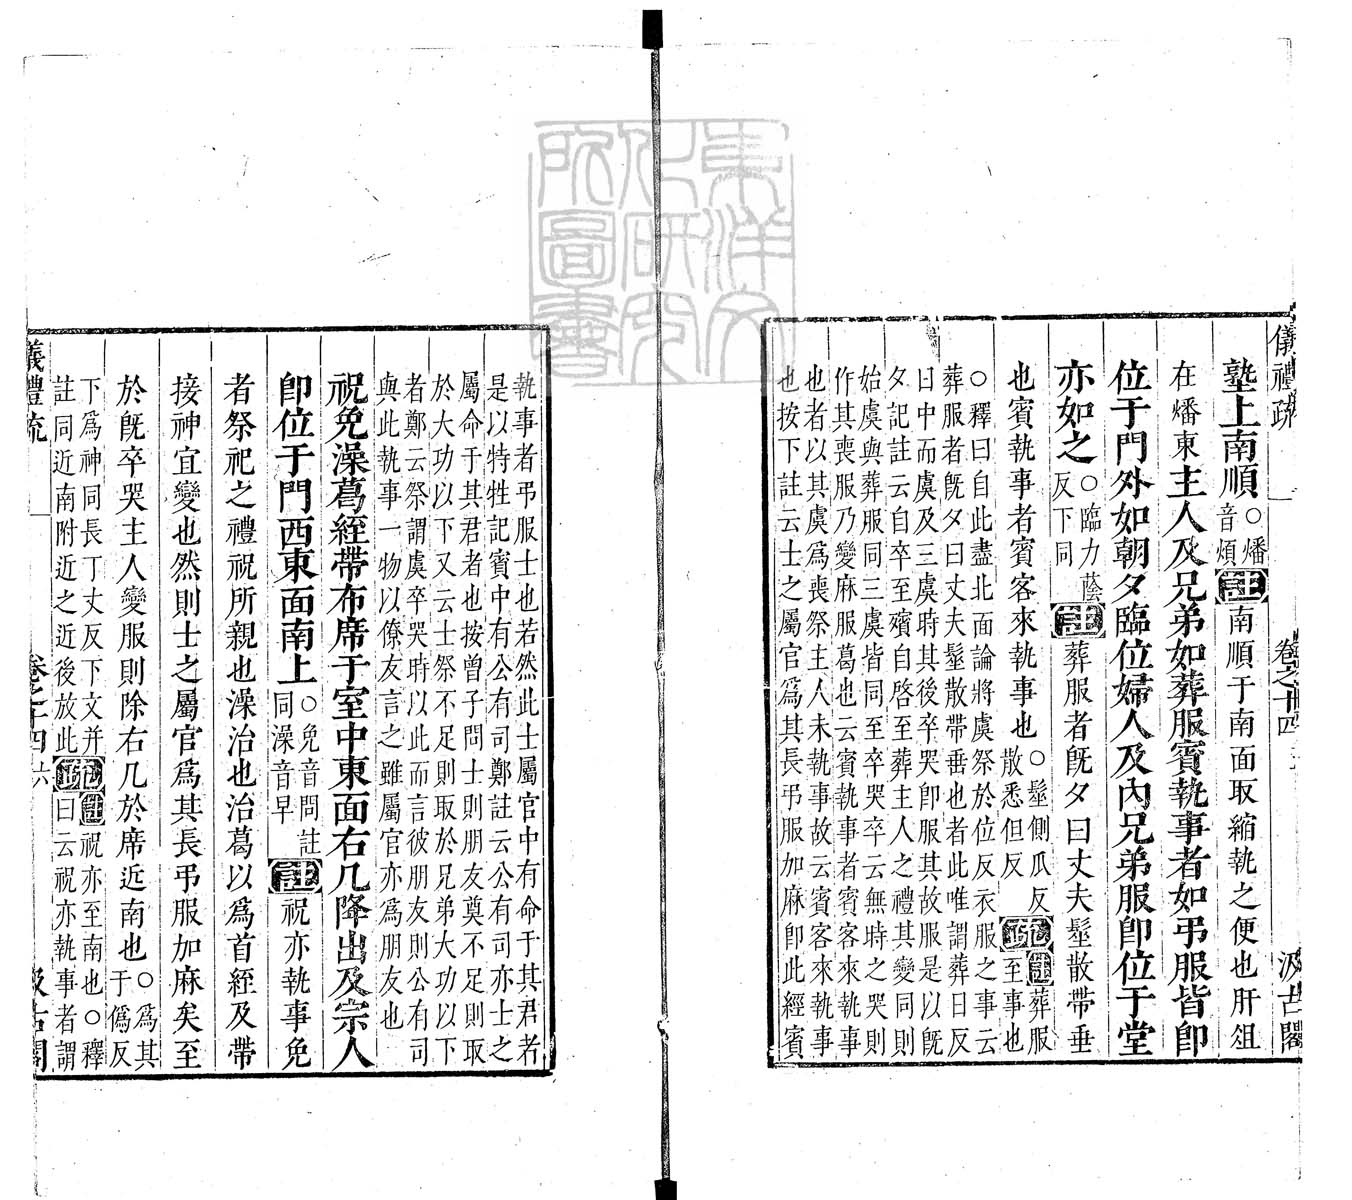 儀禮疏
卷之十四
汲古閣
塾上南順○燔音煩註南順于南面取縮執之便也肝俎
在燔東主人及兄弟如葬服賓執事者如弔服皆卽
位于門外如朝夕臨位婦人及內兄弟服卽位于堂
亦如之○臨力蔭反下同註葬服者既夕曰丈夫髽散帶垂
也賓執事者賓客來執事也○髽側瓜反散悉但反疏註葬服至事也
○釋曰自此盡北面論將虞祭於位反衣服之事云
葬服者既夕曰丈夫髽散帶垂也者此唯謂葬日反
日中而虞及三虞時其後卒哭卽服其故服是以既
夕記註云自卒至殯自啓至葬主人之禮其變同則
始虞與葬服同三虞皆同至卒哭卒云無時之哭則
作其喪服乃變麻服葛也云賓執事者賓客來執事
也者以其虞爲喪祭主人未執事故云賓客來執事
也按下註云士之屬官爲其長弔服加麻卽此經賓
執事者弔服士也若然此士屬官中有命于其君者
是以特牲記賓中有公有司鄭註云公有司亦士之
屬命于其君者也按曾子問士則朋友奠不足則取
於大功以下又云士祭不足則取於兄弟大功以下
者鄭云祭謂虞卒哭時以此而言彼朋友則公有司
與此執事一物以僚友言之雖屬官亦爲朋友也
祝免澡葛絰帶布席于室中東面右几降出及宗人
卽位于門西東面南上○免音問註同澡音早註祝亦執事免
者祭祀之禮祝所親也澡治也治葛以爲首絰及帶
接神宜變也然則士之屬官爲其長弔服加麻矣至
於既卒哭主人變服則除右几於席近南也○爲其于僞反
下爲神同長丁丈反下文并註同近南附近之近後放此疏註祝亦至南也○釋曰云祝亦執事者謂
儀禮疏
卷之十四
六
汲古閣